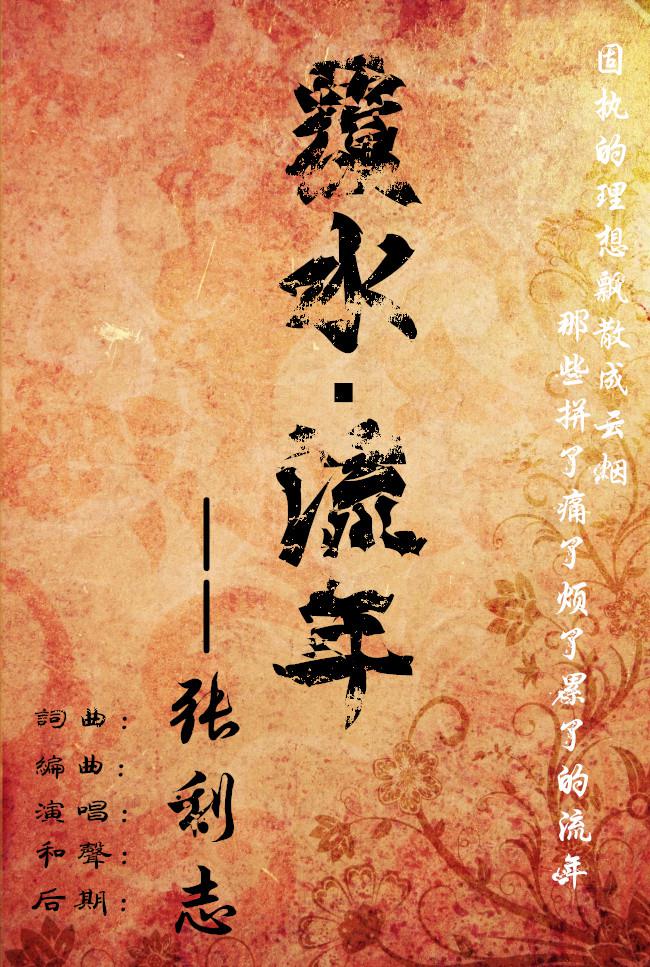 固执的理想飘散成云烟
那些拼了痛了烦了累了的流年
覆水·流年
——张志
詞曲：
編曲：
演唱：
和聲：
后期：